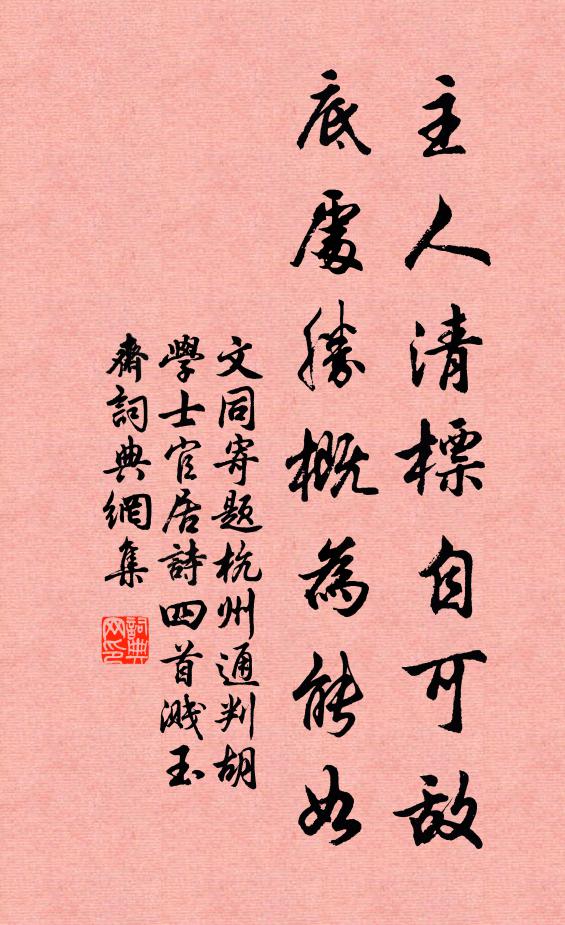 主人清標自可敵
底處勝概為能如
文同寄題杭州通判胡
學士官居詩四首濺玉
齋詞典網集
詞典网印